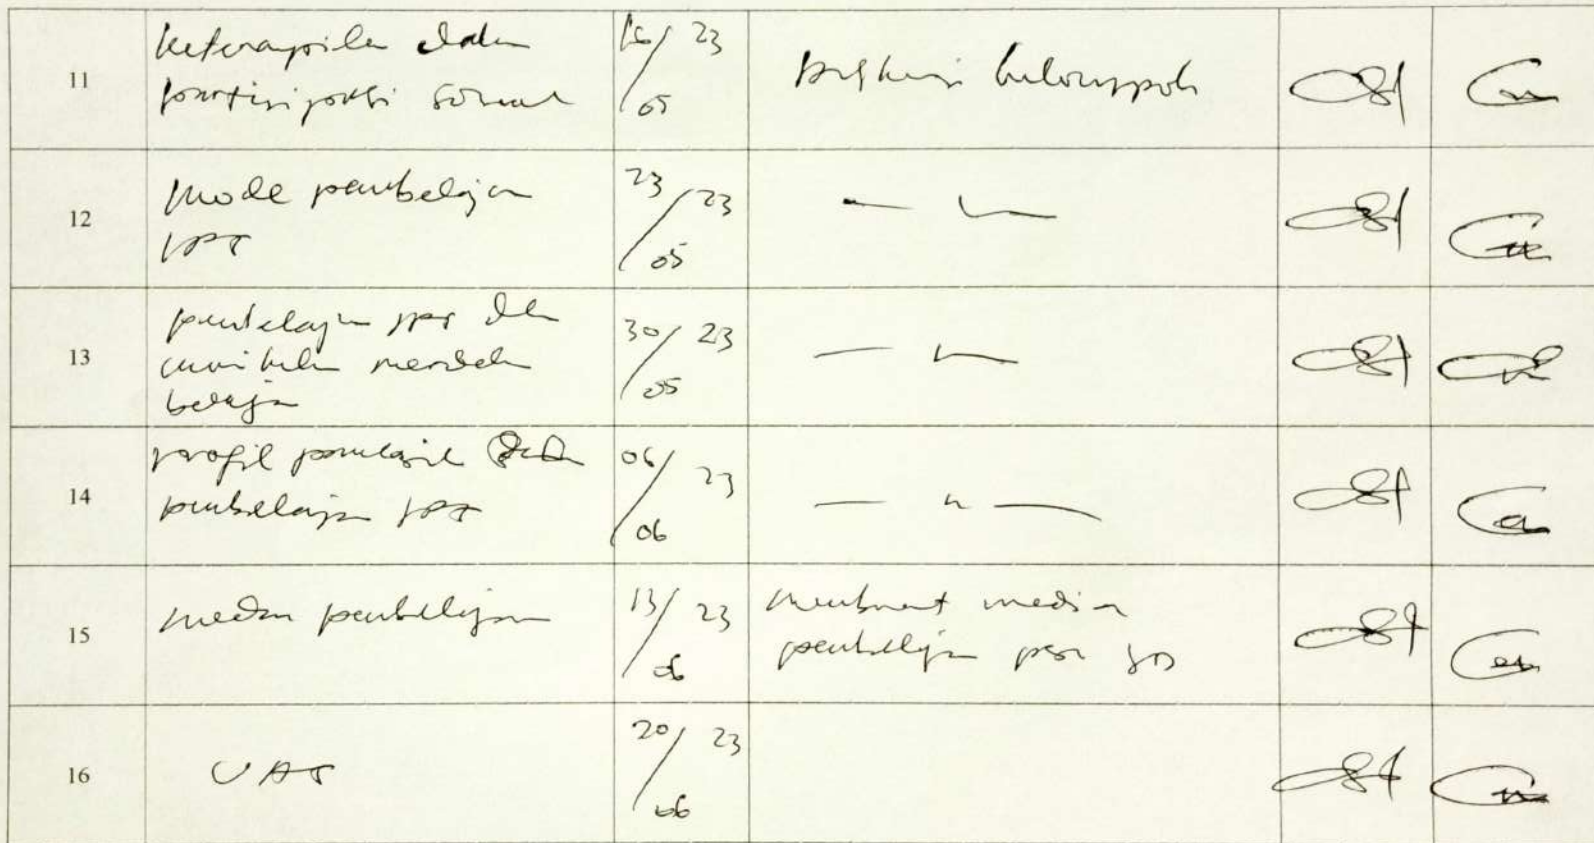 11
keterampilan dalam
partisipasi sosial
16/05 23
Diskusi kelompok
12
Model pembelajaran
IPS
23/05 23
— " —
13
pembelajaran IPS dlm
kurikulum merdeka
belajar
30/05 23
— " —
14
profil pancasila dalam
pembelajaran IPS
06/06 23
— " —
15
media pembelajaran
13/06 23
membuat media
pembelajaran IPS
16
UAS
20/06 23